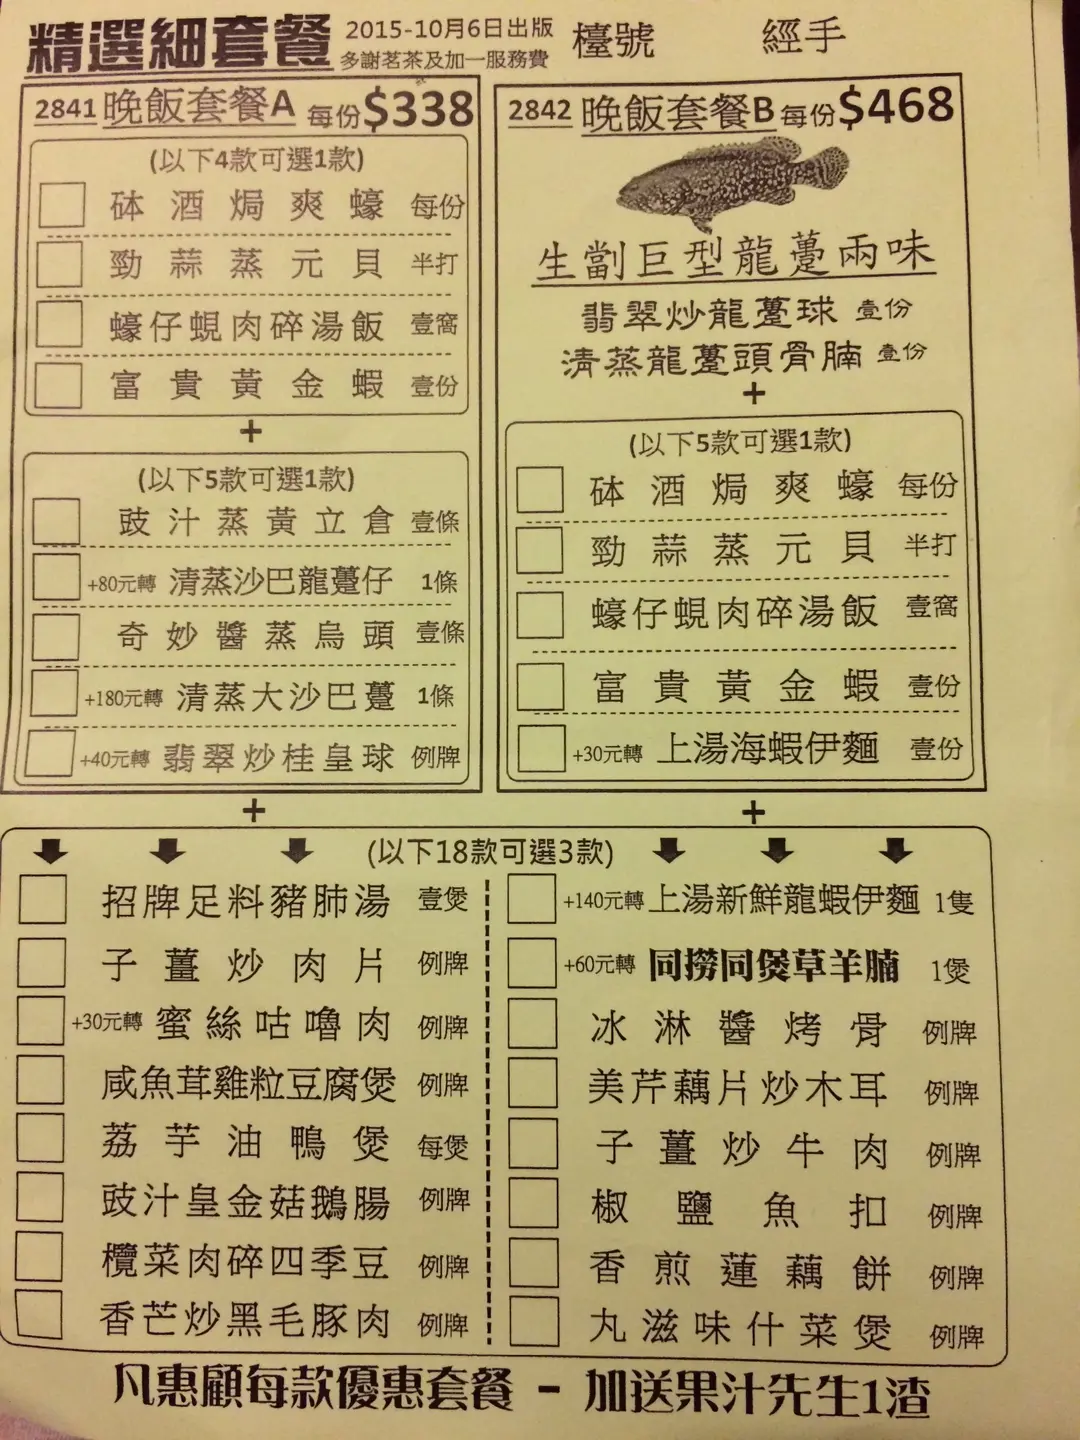 精選細套餐 2015-10月6日出版 檯號 經手
多謝茗茶及加一服務費
2841 晚飯套餐A 每份$338
(以下4款可選1款)
砵酒焗爽蠔 每份
勁蒜蒸元貝 半打
蠔仔蜆肉碎湯飯 壹窩
富貴黃金蝦 壹份
+
(以下5款可選1款)
豉汁蒸黃立倉 壹條
+80元轉 清蒸沙巴龍躉仔 1條
奇妙醬蒸烏頭 壹條
+180元轉 清蒸大沙巴躉 1條
+40元轉 翡翠炒桂皇球 例牌
+
2842 晚飯套餐B 每份$468
生劏巨型龍躉兩味
翡翠炒龍躉球 壹份
清蒸龍躉頭骨腩 壹份
+
(以下5款可選1款)
砵酒焗爽蠔 每份
勁蒜蒸元貝 半打
蠔仔蜆肉碎湯飯 壹窩
富貴黃金蝦 壹份
+30元轉 上湯海蝦伊麵 壹份
+
(以下18款可選3款)
招牌足料豬肺湯 壹煲
子薑炒肉片 例牌
+30元轉 蜜絲咕嚕肉 例牌
咸魚茸雞粒豆腐煲 例牌
荔芋油鴨煲 每煲
豉汁皇金菇鵝腸 例牌
欖菜肉碎四季豆 例牌
香芒炒黑毛豚肉 例牌
+140元轉 上湯新鮮龍蝦伊麵 1隻
+60元轉 同撈同煲草羊腩 1煲
冰淋醬烤骨 例牌
美芹藕片炒木耳 例牌
子薑炒牛肉 例牌
椒鹽魚扣 例牌
香煎蓮藕餅 例牌
丸滋味什菜煲 例牌
凡惠顧每款優惠套餐 - 加送果汁先生1渣